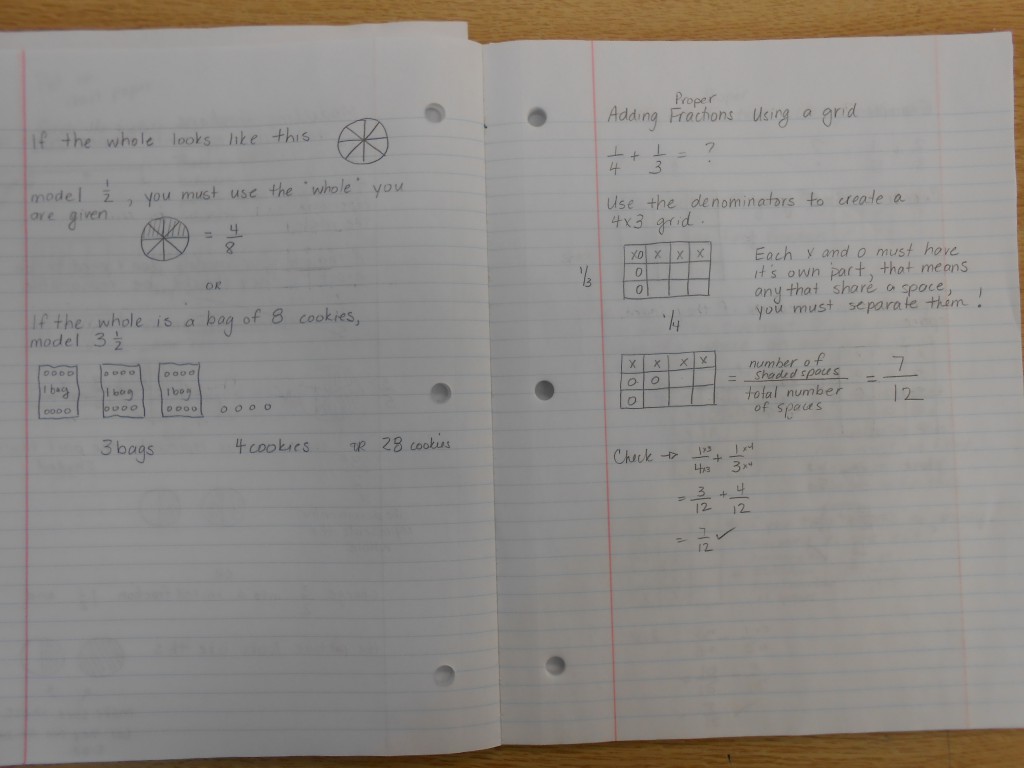 If the whole looks like this
model 1/2, you must use the "whole" you
are given
= 4/8
OR
If the whole is a bag of 8 cookies,
model 3 1/2
0000 0000 0000
1 bag 1 bag 1 bag
0000 0000 0000 0 0 0 0
3 bags 4 cookies or 28 cookies
Proper
Adding Fractions Using a grid
1/4 + 1/3 = ?
Use the denominators to create a
4x3 grid.
XO X X X
O
O
1/3
1/4
Each x and o must have
it's own part, that means
any that share a space,
you must separate them!
X X X X
O O
O
= number of shaded spaces / total number of spaces = 7/12
Check → 1x3/4x3 + 1x4/3x4
= 3/12 + 4/12
= 7/12 ✓